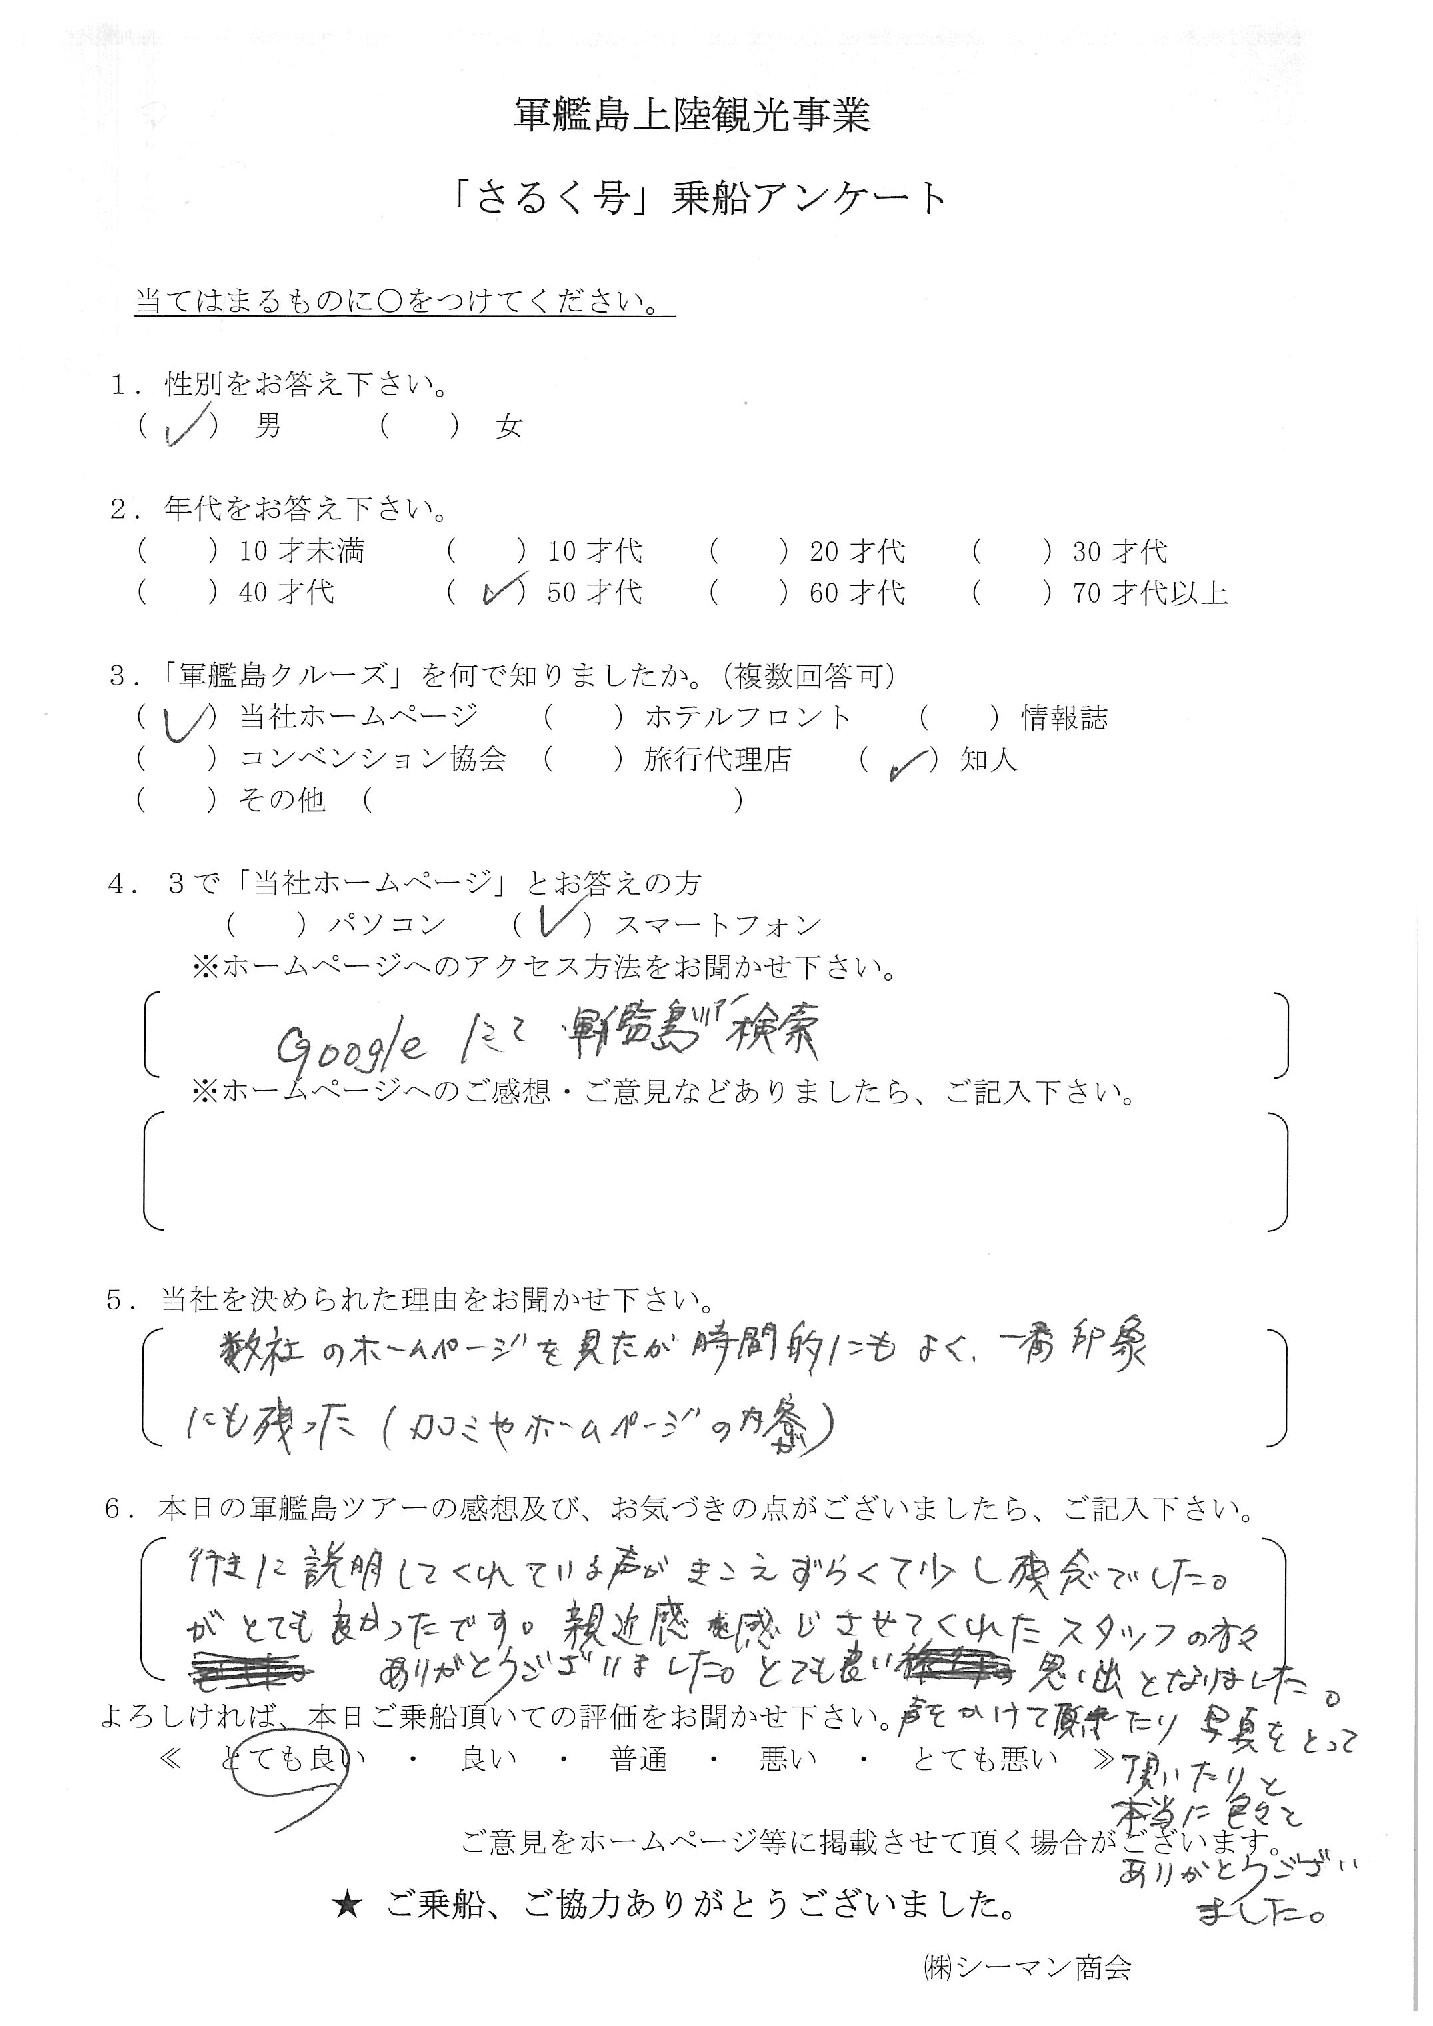 軍艦島上陸観光事業
「さるく号」乗船アンケート
当てはまるものに〇をつけてください。
1．性別をお答え下さい。
（ ✓ ） 男 （ ） 女
2．年代をお答え下さい。
（ ）10才未満 （ ）10才代 （ ）20才代 （ ）30才代
（ ）40才代 （ ✓ ）50才代 （ ）60才代 （ ）70才代以上
3．「軍艦島クルーズ」を何で知りましたか。（複数回答可）
（ ✓ ）当社ホームページ （ ）ホテルフロント （ ）情報誌
（ ）コンベンション協会 （ ）旅行代理店 （ ✓ ）知人
（ ）その他 （ ）
4．３で「当社ホームページ」とお答えの方
（ ）パソコン （ ✓ ）スマートフォン
※ホームページへのアクセス方法をお聞かせ下さい。
Google にて 軍艦島ツアー検索
※ホームページへのご感想・ご意見などありましたら、ご記入下さい。
5．当社を決められた理由をお聞かせ下さい。
数社のホームページを見たが時間的にもよく、一番印象
にも残った（口コミやホームページの内容が）
6．本日の軍艦島ツアーの感想及び、お気づきの点がございましたら、ご記入下さい。
行きに説明してくれている声がきこえずらくて少し残念でした。
がとても良かったです。親近感を感じさせてくれたスタッフの方々
ありがとうございました。とても良い 思い出となりました。
よろしければ、本日ご乗船頂いての評価をお聞かせ下さい。
声をかけて頂きたり 写真をとって
≪ とても良い ・ 良い ・ 普通 ・ 悪い ・ とても悪い ≫
頂いたりと
本当に色々と
ご意見をホームページ等に掲載させて頂く場合がございます。
ありがとうござい
★ ご乗船、ご協力ありがとうございました。
ました。
㈱シーマン商会